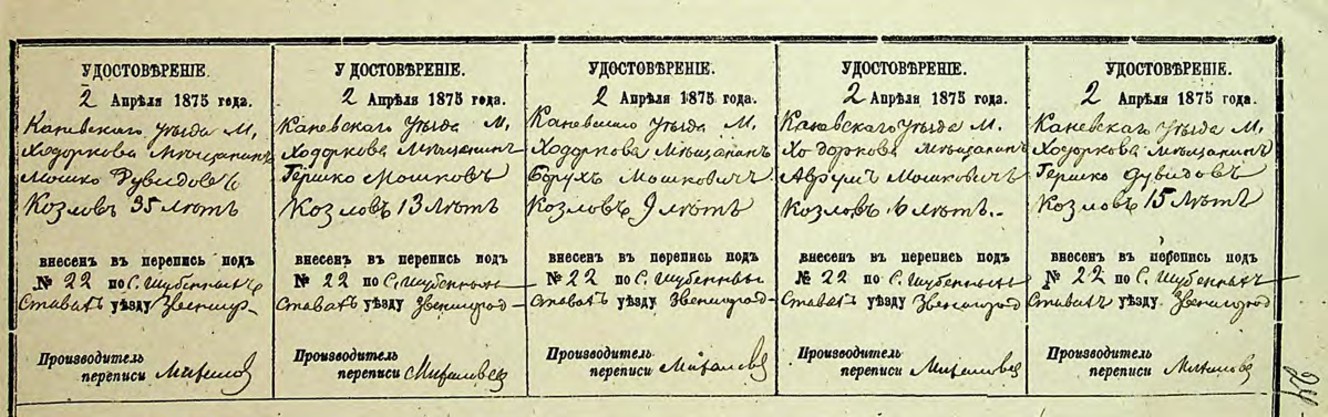 УДОСТОВѢРЕНІЕ.
2 Апрѣля 1875 года.
Каневскаго Уѣзда М.
Ходоркова Мѣщанинъ
Мошко Дувидовъ
Козловъ 35 лѣтъ
внесенъ въ перепись подъ
№ 22 по С. Шубенныхъ
Ставахъ уѣзду Звенигор-
Производитель
переписи
УДОСТОВѢРЕНІЕ.
2 Апрѣля 1875 года.
Каневскаго Уѣзда М.
Ходоркова Мѣщанинъ
Гершко Мошковъ
Козловъ 13 лѣтъ
внесенъ въ перепись подъ
№ 22 по С. Шубенныхъ
Ставахъ уѣзду Звенигород-
Производитель
переписи
УДОСТОВѢРЕНІЕ.
2 Апрѣля 1875 года.
Каневскаго Уѣзда М.
Ходоркова Мѣщанинъ
Борухъ Мошковичъ
Козловъ 9 лѣтъ
внесенъ въ перепись подъ
№ 22 по С. Шубенныхъ
Ставахъ уѣзду Звенигород-
Производитель
переписи
УДОСТОВѢРЕНІЕ.
2 Апрѣля 1875 года.
Каневскаго Уѣзда М.
Ходоркова Мѣщанинъ
Аврумъ Мошковичъ
Козловъ 6 лѣтъ.
внесенъ въ перепись подъ
№ 22 по С. Шубенныхъ
Ставахъ уѣзду Звенигород
Производитель
переписи
УДОСТОВѢРЕНІЕ.
2 Апрѣля 1875 года.
Каневскаго Уѣзда М.
Ходоркова Мѣщанинъ
Гершко Дувидовъ
Козловъ 15 лѣтъ
внесенъ въ перепись подъ
№ 22 по С. Шубенныхъ
Ставахъ уѣзду Звенигород
Производитель
переписи